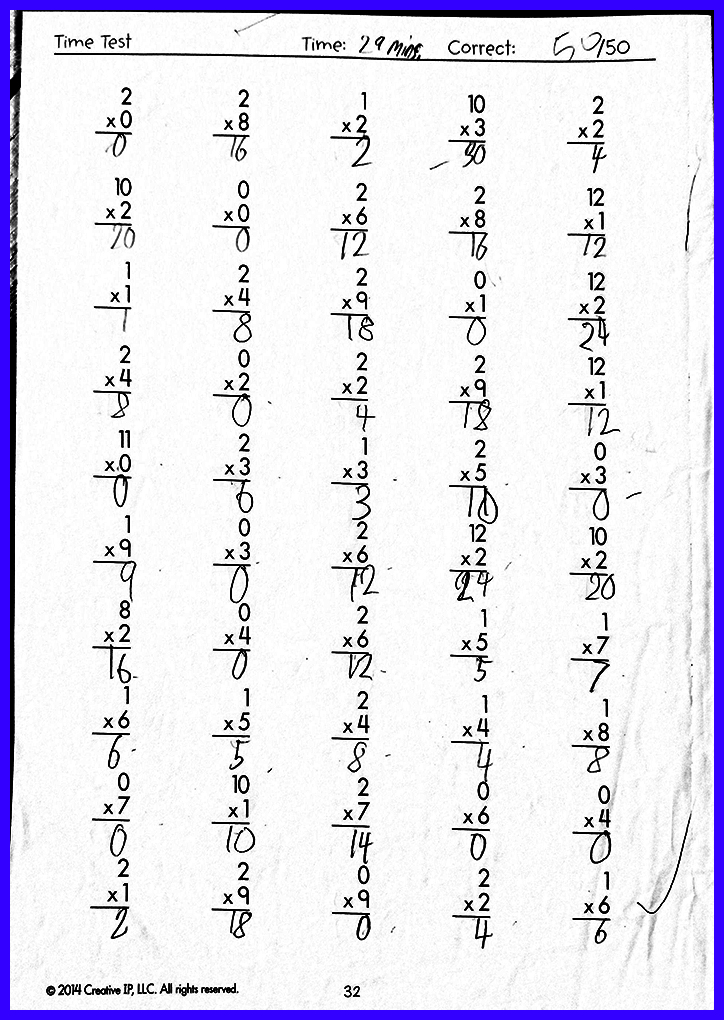 Time Test Time: 29 mins. Correct: 50/50
2 2 1 10 2
x0 x8 x2 x3 x2
0 16 2 30 4
10 0 2 2 12
x2 x0 x6 x8 x1
20 0 12 16 12
1 2 2 0 12
x1 x4 x9 x1 x2
1 8 18 0 24
2 0 2 2 12
x4 x2 x2 x9 x1
8 0 4 18 12
11 2 1 2 0
x0 x3 x3 x5 x3
0 6 3 10 0
1 0 2 12 10
x9 x3 x6 x2 x2
9 0 12 24 20
8 0 2 1 1
x2 x4 x6 x5 x7
16 0 12 5 7
1 1 2 1 1
x6 x5 x4 x4 x8
6 5 8 4 8
0 10 2 0 0
x7 x1 x7 x6 x4
0 10 14 0 0
2 2 0 2 1
x1 x9 x9 x2 x6
2 18 0 4 6
© 2014 Creative IP, LLC. All rights reserved.
32